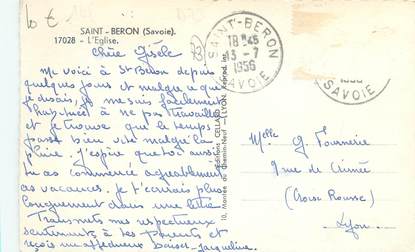 10 €
SAINT-BERON (Savoie).
17028 - L'Eglise.
SAINT-BERON
18H45
13-7
1956
SAVOIE
SAVOIE
Chère Gisèle
Me voici à St Béron depuis
quelques jours et malgré ce que
je disais, je me suis facilement
habituée à ne pas travailler
et je trouve que le temps
passe bien vite malgré la
pluie. J'espère que toi aussi
tu as commencé agréablement
tes vacances. Je t'écrirai plus
longuement dans une lettre.
Transmets mes respectueux
sentiments à tes Parents et
reçois un affectueux baiser. Jacqueline
Editions CELLARD
10, Montée du Chemin-Neuf - LYON
Reprod. int.
Melle G. Fournerie
9 rue de Crimée
(Croix Rousse)
Lyon